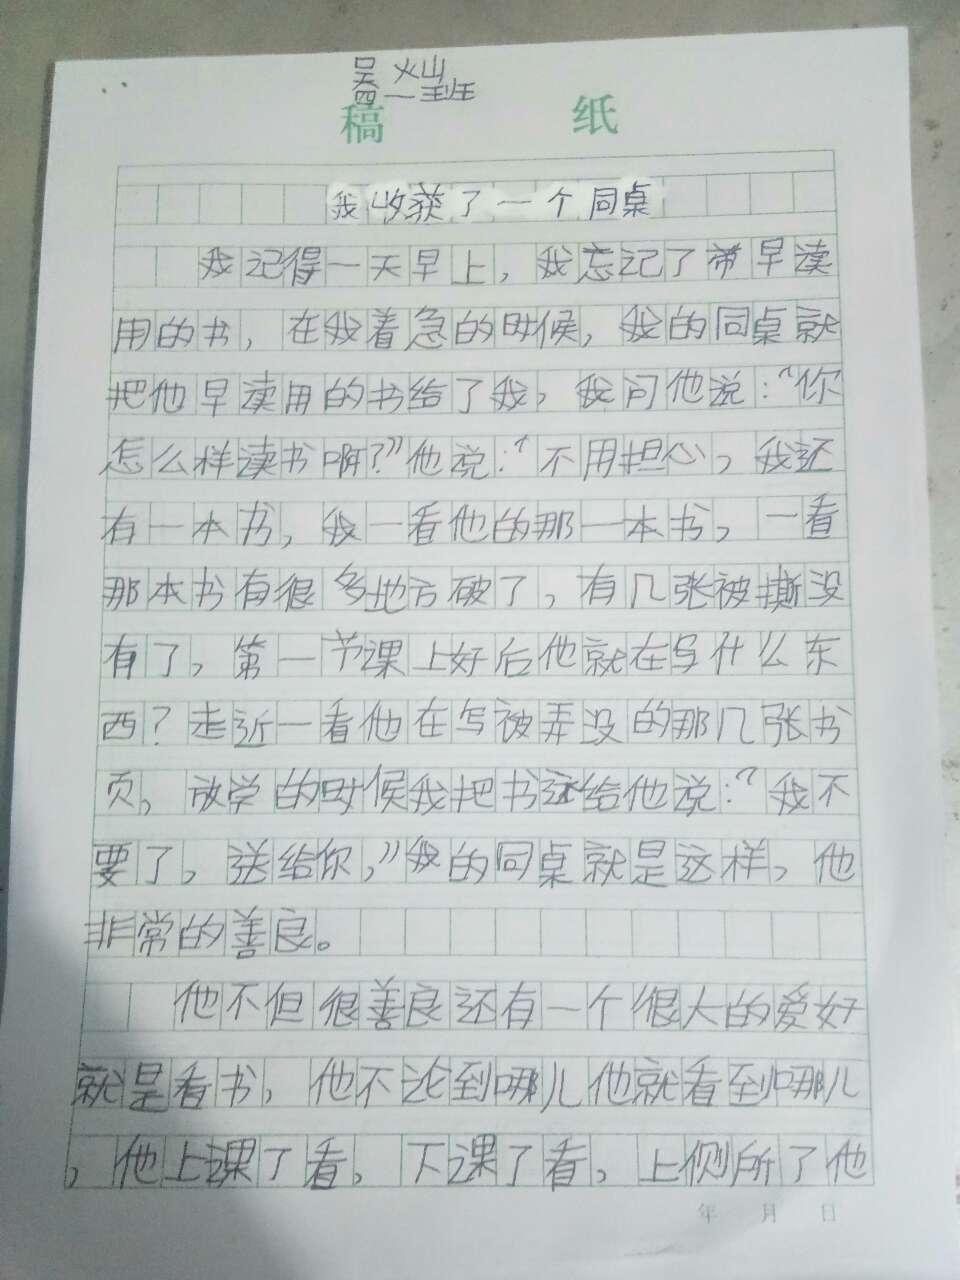 吴灿
四一班
稿 纸
我收获了一个同桌
我记得一天早上，我忘记了带早读
用的书，在我着急的时候，我的同桌就
把他早读用的书给了我，我问他说：“你
怎么样读书啊？”他说：“不用担心，我还
有一本书，我一看他的那一本书，一看
那本书有很多地方破了，有几张被撕没
有了，第一节课上好后他就在写什么东
西？走近一看他在写被弄没的那几张书
页，放学的时候我把书还给他说：“我不
要了，送给你，”我的同桌就是这样，他
非常的善良。
他不但很善良还有一个很大的爱好
就是看书，他不论到哪儿他就看到哪儿
，他上课了看，下课了看，上侧所了他
年 月 日